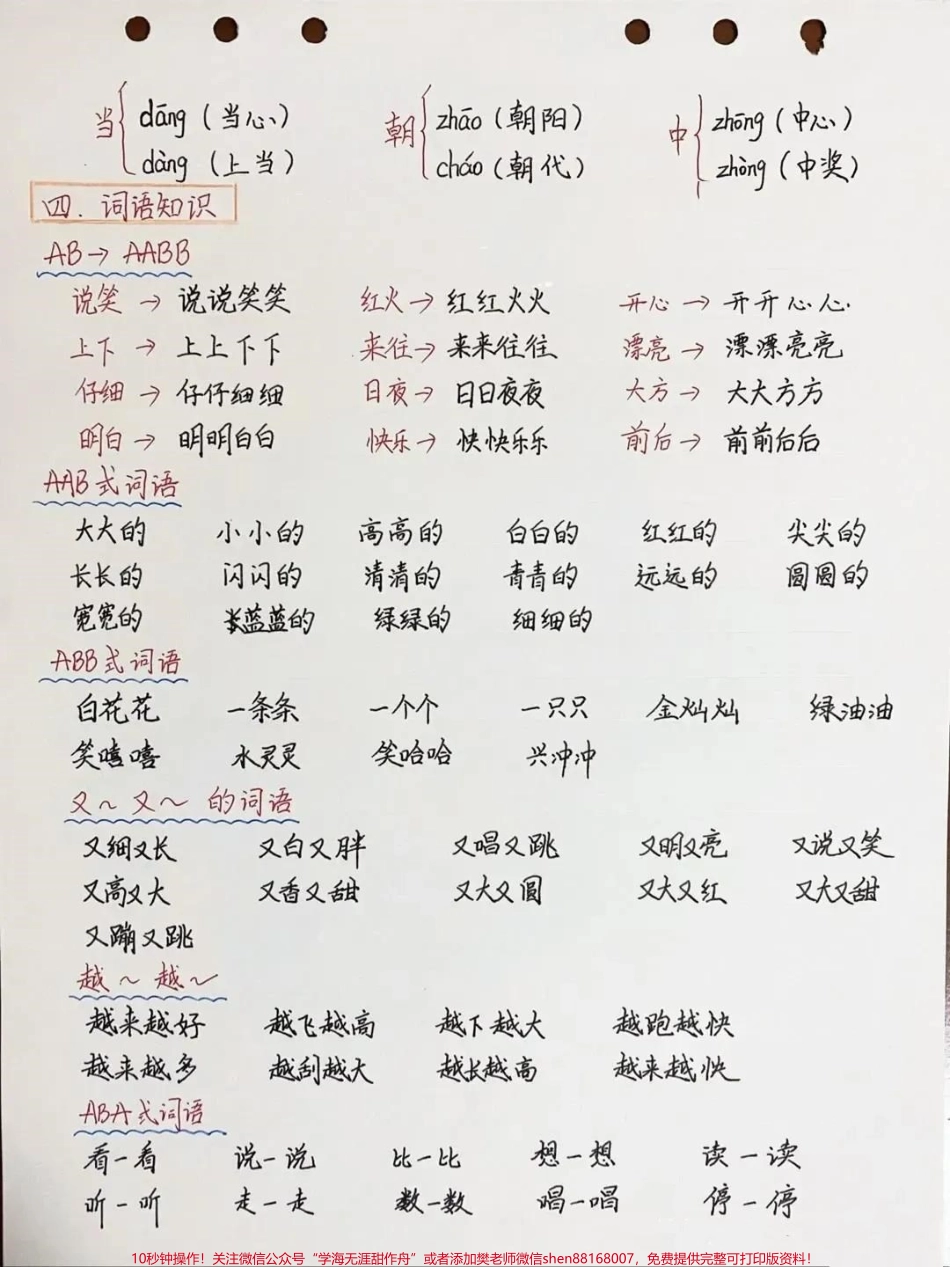 当 dāng（当心） 朝 zhāo（朝阳） 中 zhōng（中心）
dàng（上当） cháo（朝代） zhòng（中奖）
四．词语知识
AB→AABB
说笑→说说笑笑 红火→红红火火 开心→开开心心
上下→上上下下 来往→来来往往 漂亮→漂漂亮亮
仔细→仔仔细细 日夜→日日夜夜 大方→大大方方
明白→明明白白 快乐→快快乐乐 前后→前前后后
AAB式词语
大大的 小小的 高高的 白白的 红红的 尖尖的
长长的 闪闪的 清清的 青青的 远远的 圆圆的
宽宽的 蓝蓝的 绿绿的 细细的
ABB式词语
白花花 一条条 一个个 一只只 金灿灿 绿油油
笑嘻嘻 水灵灵 笑哈哈 兴冲冲
又～又～的词语
又细又长 又白又胖 又唱又跳 又明又亮 又说又笑
又高又大 又香又甜 又大又圆 又大又红 又大又甜
又蹦又跳
越～越～
越来越好 越飞越高 越下越大 越跑越快
越来越多 越刮越大 越长越高 越来越快
ABA式词语
看一看 说一说 比一比 想一想 读一读
听一听 走一走 数一数 唱一唱 停一停
10秒钟操作！关注微信公众号“学海无涯甜作舟”或者添加樊老师微信shen88168007，免费提供完整可打印版资料！